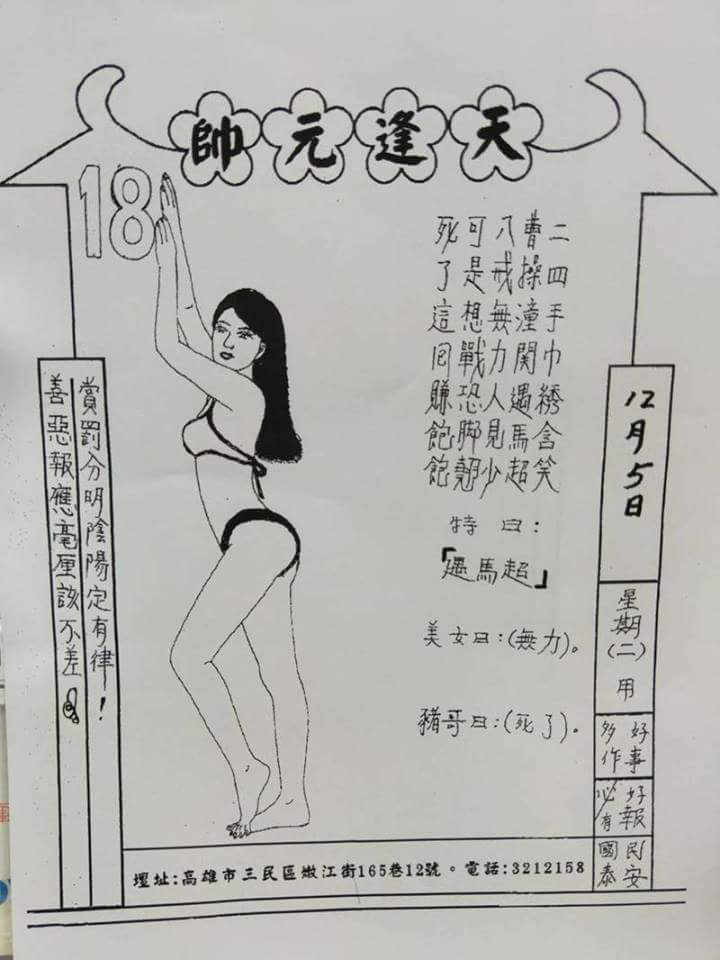 天逢元帥
18
二四手巾綉含笑
曹操潼関遇馬超
八戒無力人見少
可是想戰恐脚翹
死了這囘賺飽飽
特曰：
「遇馬超」
美女曰：(無力)。
豬哥曰：(死了)。
12月5日
星期(二)用
好事
多作
好報
必有
民安
國泰
賞罰分明陰陽定有律！
善惡報應毫厘該不差
壇址:高雄市三民區嫩江街165巷12號。電話:3212158